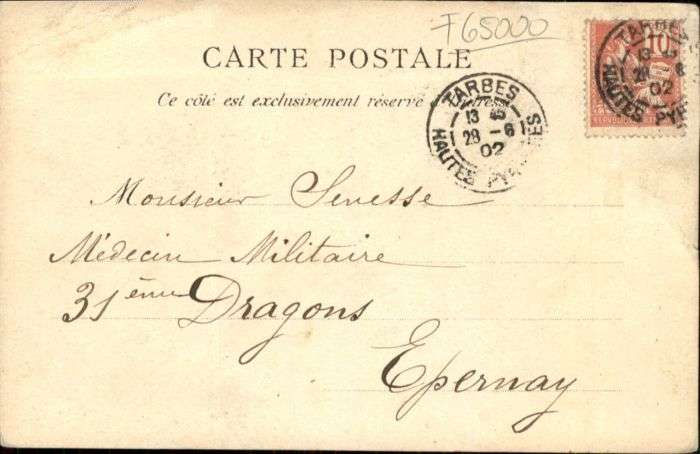 F65000
CARTE POSTALE
Ce côté est exclusivement réservé à l'adresse
TARBES
13 45
28 - 6
02
HAUTES PYRÉNÉES
10
TARBES
13 45
28 6
02
HAUTES PYR
Monsieur Senesse
Médecin Militaire
31ème Dragons
Epernay